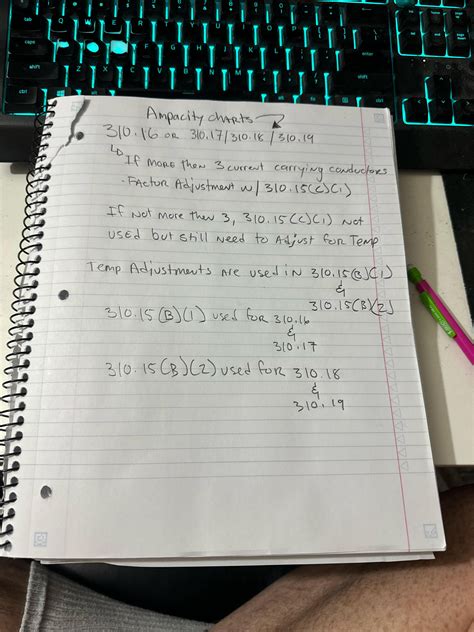 Ampacity Charts
310.16 or 310.17/310.18/310.19
If more then 3 current carrying conductors
- Factor Adjustment w/ 310.15(C)(1)
If not more then 3, 310.15(C)(1) not
used but still need to Adjust for Temp
Temp Adjustments are used in 310.15(B)(1)
&
310.15(B)(2)
310.15(B)(1) used for 310.16
&
310.17
310.15(B)(2) used for 310.18
&
310.19